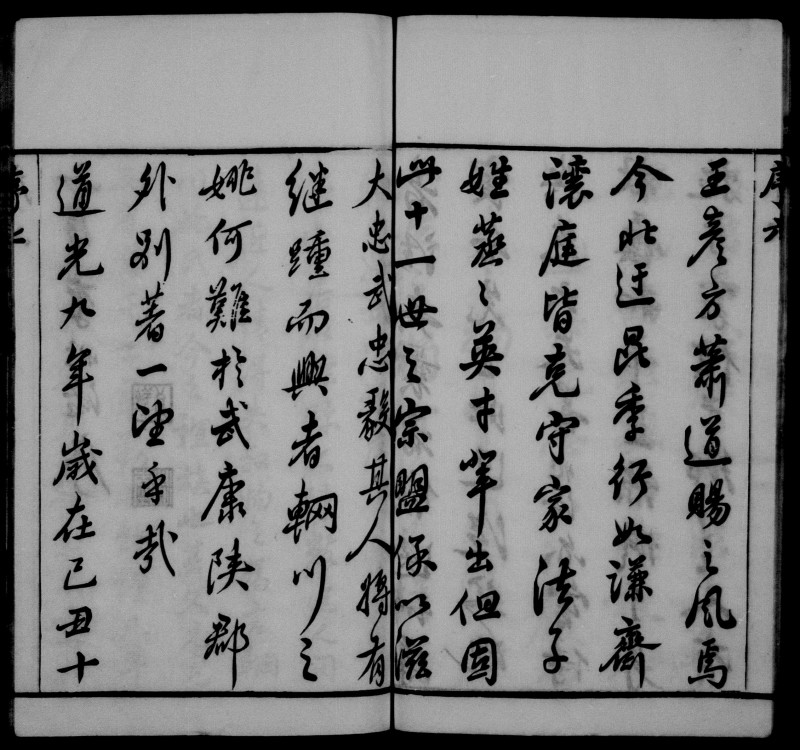 王彥方蕭道賜之風焉
今昆季行如謙齋
讓庭皆克守家法子
姓蒸〻英才輩出但固
此十一世之宗盟保以滋
大忠武忠毅其人將有
继踵而興者輞川之
姚何難於武康陝郡
外別著一望乎哉
道光九年歲在己丑十